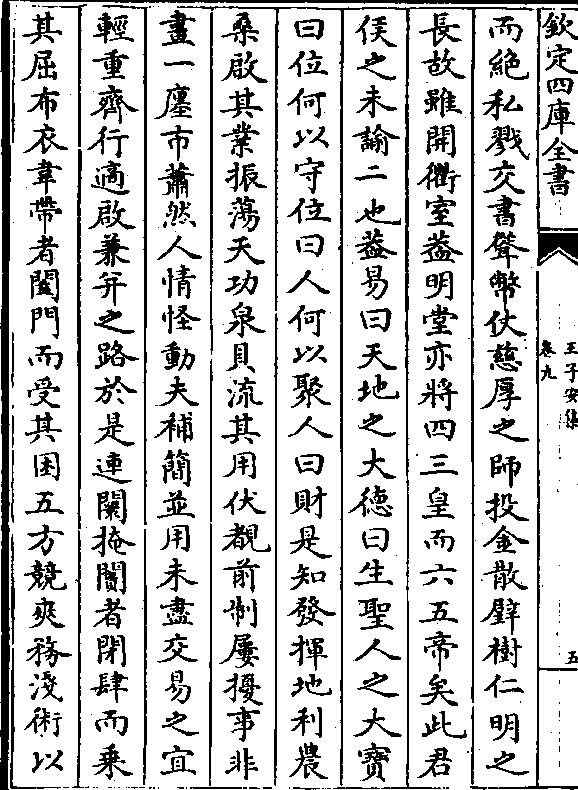 欽定四庫全書
王子安集
卷九
五
而絶私戮交書聳幣仗慈厚之師投金散璧樹仁明之
長故雖開衢室葢明堂亦將四三皇而六五帝矣此君
侯之未諭二也葢易曰天地之大德曰生聖人之大寶
曰位何以守位曰人何以聚人曰財是知發揮地利農
桑啟其業振蕩天功泉貝流其用伏覩前制屢擾事非
畫一廛市蕭然人情怪動夫補簡並用未盡交易之宜
輕重齊行適啟兼并之路於是連闤掩闠者閉肆而乗
其屈布衣韋帶者闔門而受其困五方競爽務淺術以